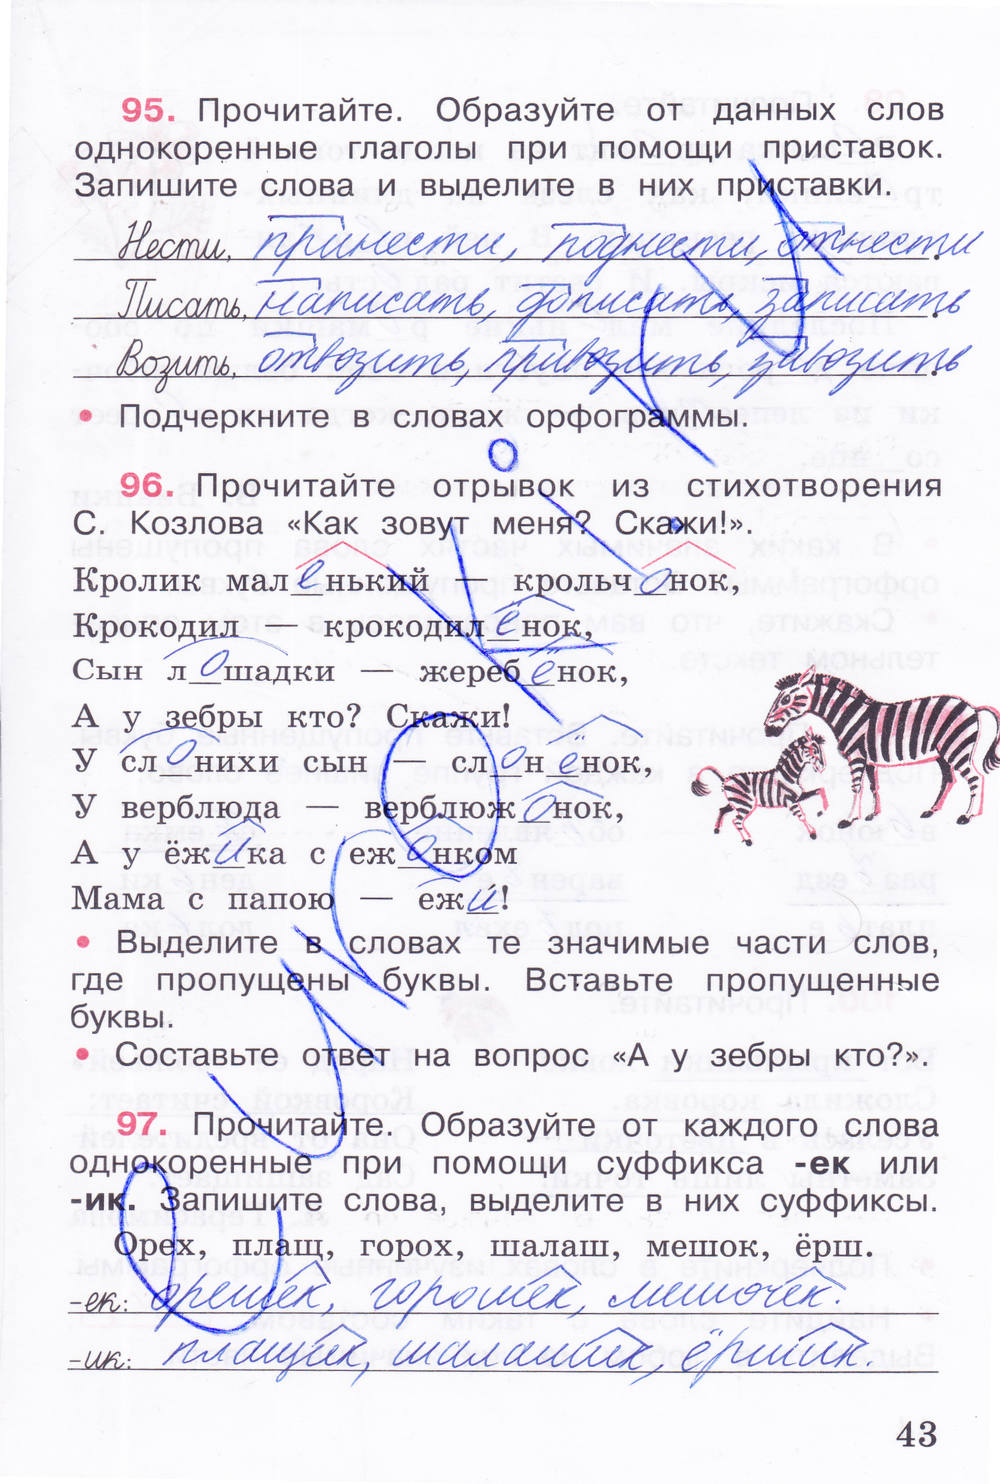 95. Прочитайте. Образуйте от данных слов
однокоренные глаголы при помощи приставок.
Запишите слова и выделите в них приставки.
Нести, принести, поднести, отнести.
Писать, написать, дописать, записать.
Возить, отвозить, привозить, завозить.
• Подчеркните в словах орфограммы.
96. Прочитайте отрывок из стихотворения
С. Козлова «Как зовут меня? Скажи!».
Кролик маленький — крольчонок,
Крокодил — крокодилёнок,
Сын лошадки — жеребёнок,
А у зебры кто? Скажи!
У слонихи сын — слонёнок,
У верблюда — верблюжонок,
А у ёжика с ежонком
Мама с папою — ежи!
• Выделите в словах те значимые части слов,
где пропущены буквы. Вставьте пропущенные
буквы.
• Составьте ответ на вопрос «А у зебры кто?».
97. Прочитайте. Образуйте от каждого слова
однокоренные при помощи суффикса -ек или
-ик. Запишите слова, выделите в них суффиксы.
Орех, плащ, горох, шалаш, мешок, ёрш.
-ек: орешек, горошек, мешочек.
-ик: плащик, шалашик, ёршик.
43